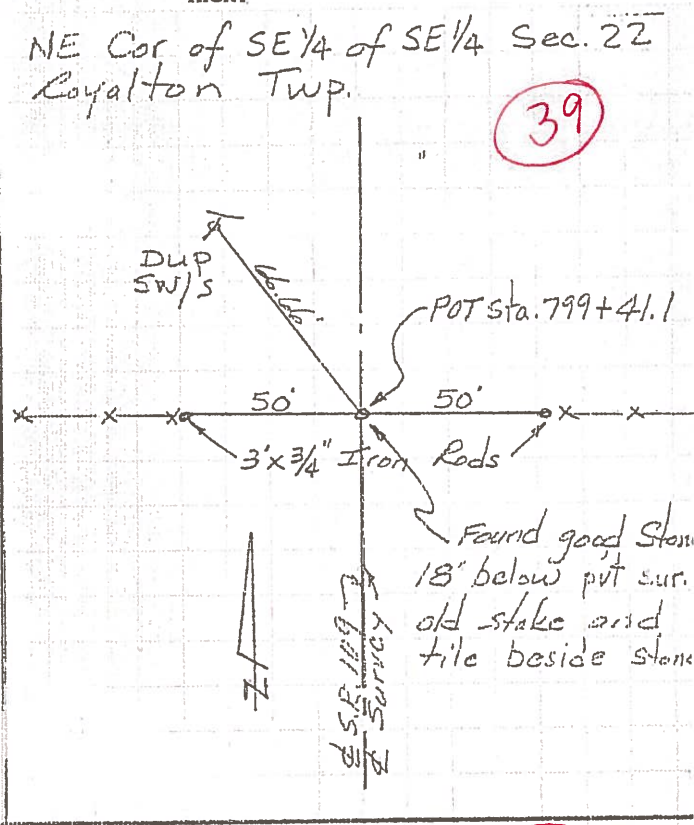 NE Cor of SE 1/4 of SE 1/4 Sec. 22
Royalton Twp.
39
Dup
SW/s
66.66'
POT Sta. 799+41.1
50'
50'
3' x 3/4" Iron Rods
Found good Ston
18" below pvt sur.
old stake and
tile beside stone
N
℄ S.R. 109
℄ Survey